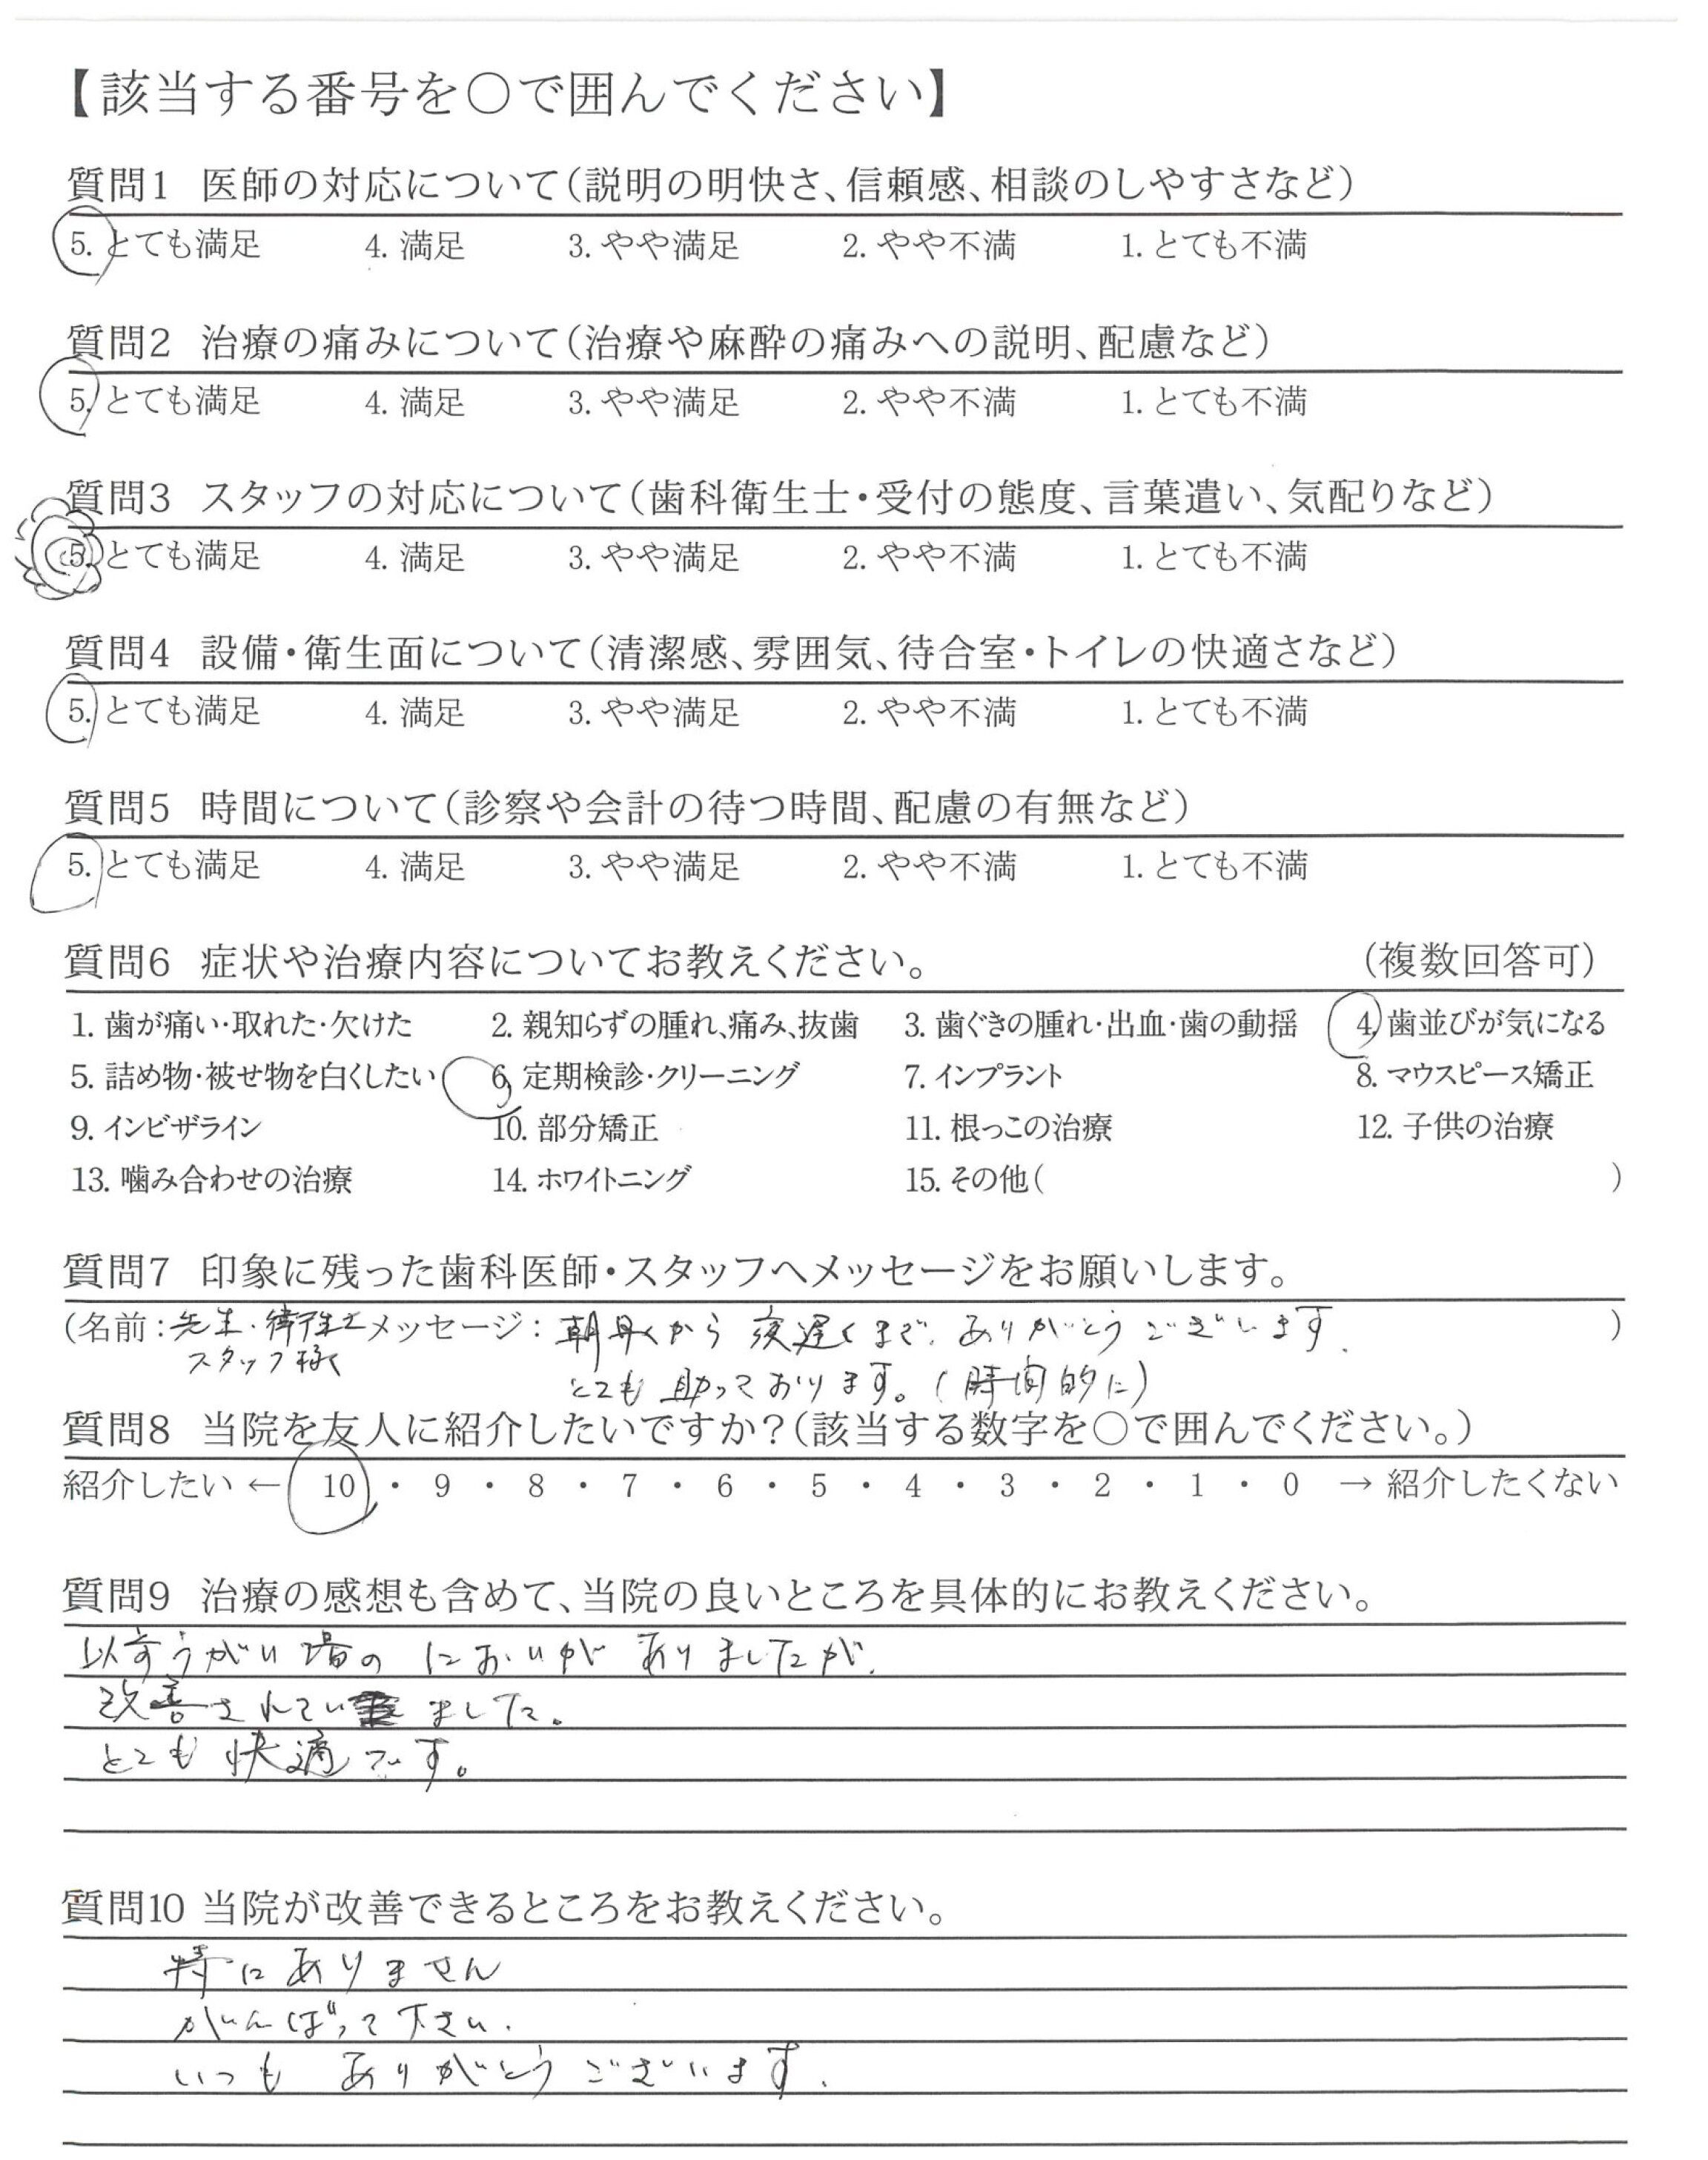 【該当する番号を○で囲んでください】
質問1 医師の対応について(説明の明快さ、信頼感、相談のしやすさなど)
5. とても満足 4. 満足 3. やや満足 2. やや不満 1. とても不満
質問2 治療の痛みについて(治療や麻酔の痛みへの説明、配慮など)
5. とても満足 4. 満足 3. やや満足 2. やや不満 1. とても不満
質問3 スタッフの対応について(歯科衛生士・受付の態度、言葉遣い、気配りなど)
5. とても満足 4. 満足 3. やや満足 2. やや不満 1. とても不満
質問4 設備・衛生面について(清潔感、雰囲気、待合室・トイレの快適さなど)
5. とても満足 4. 満足 3. やや満足 2. やや不満 1. とても不満
質問5 時間について(診察や会計の待つ時間、配慮の有無など)
5. とても満足 4. 満足 3. やや満足 2. やや不満 1. とても不満
質問6 症状や治療内容についてお教えください。 (複数回答可)
1. 歯が痛い・取れた・欠けた 2. 親知らずの腫れ、痛み、抜歯 3. 歯ぐきの腫れ・出血・歯の動揺 4. 歯並びが気になる
5. 詰め物・被せ物を白くしたい 6. 定期検診・クリーニング 7. インプラント 8. マウスピース矯正
9. インビザライン 10. 部分矯正 11. 根っこの治療 12. 子供の治療
13. 噛み合わせの治療 14. ホワイトニング 15. その他( )
質問7 印象に残った歯科医師・スタッフへメッセージをお願いします。
(名前:先生・衛生士 メッセージ:朝早くから夜遅くまで、ありがとうございます. )
スタッフ様 とても助っております。(時間的に)
質問8 当院を友人に紹介したいですか?(該当する数字を○で囲んでください。)
紹介したい ← 10 ・ 9 ・ 8 ・ 7 ・ 6 ・ 5 ・ 4 ・ 3 ・ 2 ・ 1 ・ 0 → 紹介したくない
質問9 治療の感想も含めて、当院の良いところを具体的にお教えください。
以前うがい場の においが ありましたが.
改善されていました。
とても快適です。
質問10 当院が改善できるところをお教えください。
特にありません
がんばって下さい.
いつも ありがとうございます.